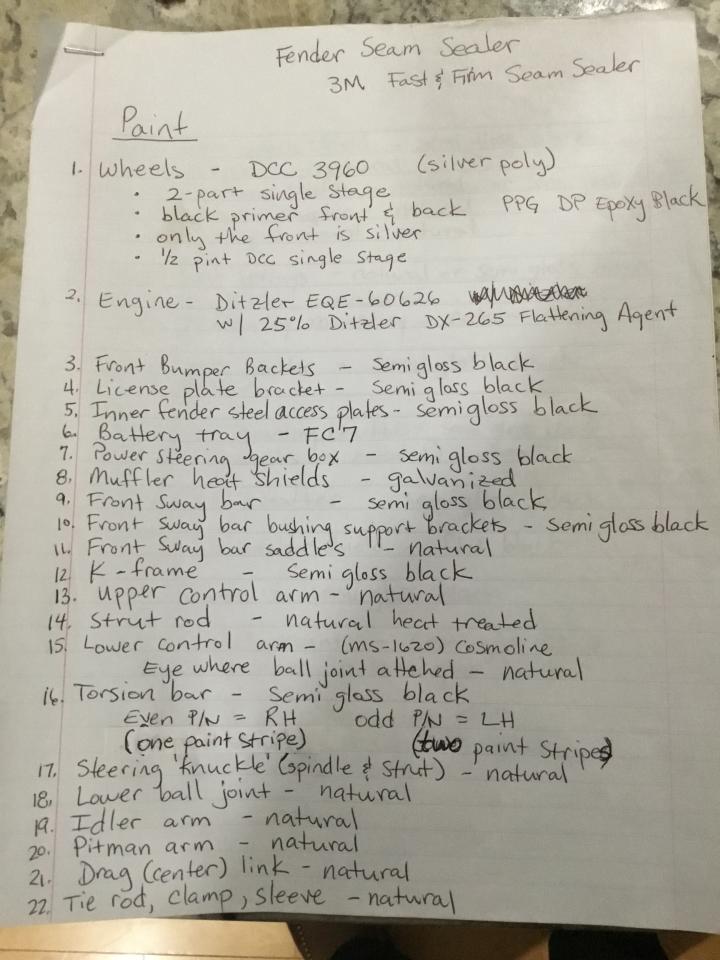 Fender Seam Sealer
3M Fast & Firm Seam Sealer
Paint
1. Wheels - DCC 3960 (silver poly)
• 2-part single stage
• black primer front & back PPG DP Epoxy Black
• only the front is silver
• 1/2 pint DCC single stage
2. Engine - Ditzler EQE-60626
w/ 25% Ditzler DX-265 Flattening Agent
3. Front Bumper Backets - Semi gloss black
4. License plate bracket - Semi gloss black
5. Inner fender steel access plates - semi gloss black
6. Battery tray - FC7
7. Power steering gear box - semi gloss black
8. Muffler heat shields - galvanized
9. Front Sway bar - semi gloss black
10. Front Sway bar bushing support brackets - Semi gloss black
11. Front Sway bar saddle's - natural
12. K-frame - Semi gloss black
13. upper control arm - natural
14. Strut rod - natural heat treated
15. Lower control arm - (MS-1620) Cosmoline
Eye where ball joint attched - natural
16. Torsion bar - Semi gloss black
Even P/N = RH odd P/N = LH
(one paint stripe) (two paint stripes)
17. Steering 'knuckle' (spindle & strut) - natural
18. Lower ball joint - natural
19. Idler arm - natural
20. Pitman arm - natural
21. Drag (center) link - natural
22. Tie rod, clamp, sleeve - natural